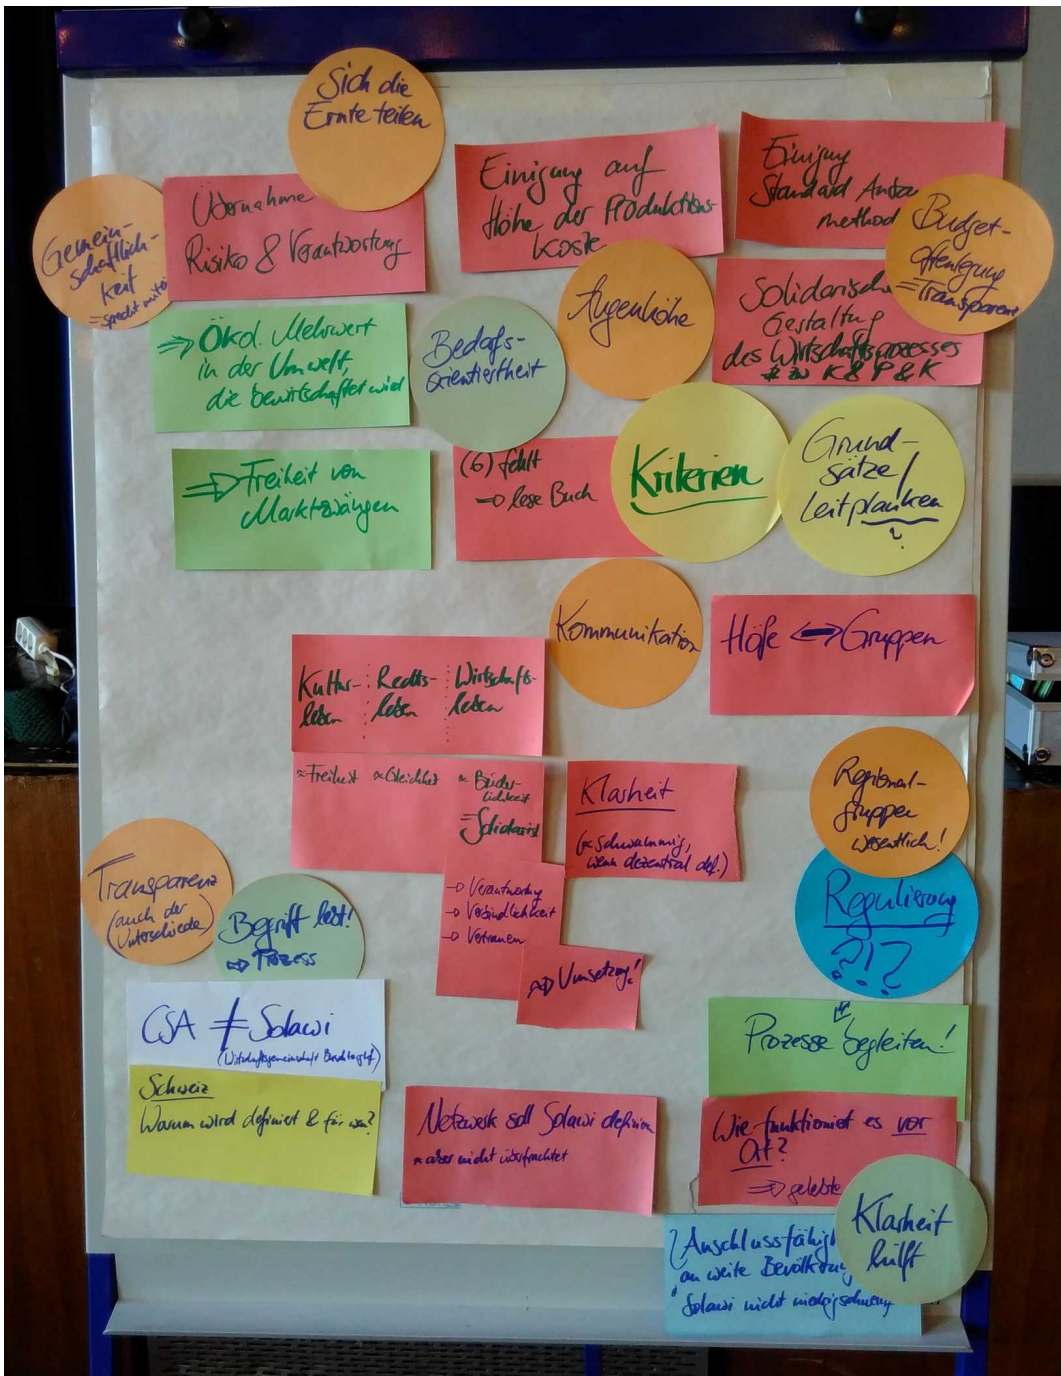 Sich die
Ernte teilen
Gemein-
schaftlich-
keit
Übernahme
Risiko & Verantwortung
Einigung auf
Höhe der Produktions-
koste
Einigung
Standard Anba
method
Budget-
offenlegung
=Transparenz
⇒ Ökol. Mehrwert
in der Umwelt,
die bewirtschaftet wird
Bedarfs-
orientiertheit
Augenhöhe
Solidarische
Gestaltung
des Wirtschaftsprozesses
K & P & K
⇒ Freiheit von
Marktzwängen
(6) fehlt
→ lese Buch
Kriterien
Grund-
sätze/
Leitplanken
?
Kommunikation
Höfe ↔ Gruppen
Kultur- Rechts- Wirtschafts-
leben leben leben
≈Freiheit ≈Gleichheit ≈Brüder-
lichkeit
=Solidarität
Klarheit
(≈Schwammig,
wenn dezentral def.)
Regional-
gruppen
wesentlich!
Regulierung
?!?
Transparenz
(auch der
Unterschiede)
Begriff lebt!
⇒ Prozess
→ Verantwortung
→ Verbindlichkeit
→ Vertrauen
⇒ Umsetzung!
CSA ≠ Solawi
(Wirtschaftsgemeinschaft
Prozesse begleiten!
Schweiz
Warum wird definiert & für wen?
Netzwerk soll Solawi definieren
aber nicht überfrachtet
Wie funktioniert es vor
Ort?
⇒ gelebte
Klarheit
hilft
Anschlussfähig
an weite Bevölkerung
Solawi nicht